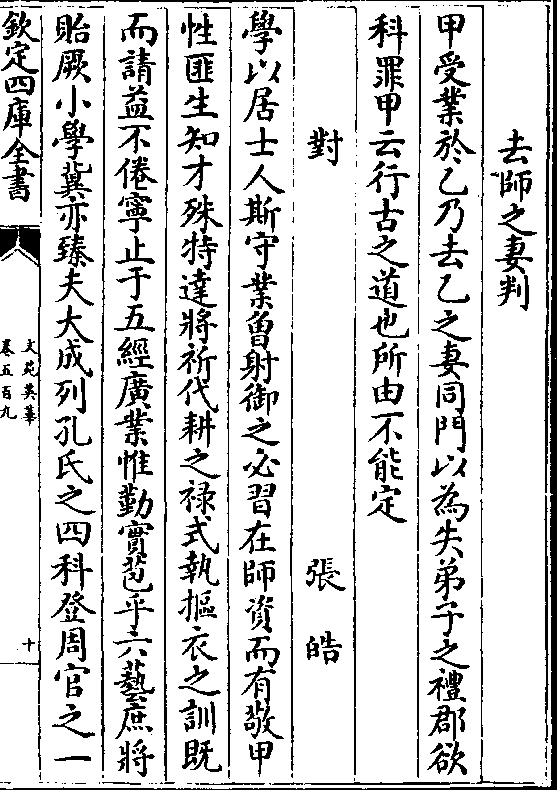 去師之妻判
甲受業於乙乃去乙之妻同門以為失弟子之禮郡欲
科罪甲云行古之道也所由不能定
對　張皓
學以居士人斯守業曾射御之必習在師資而有敬甲
性匪生知才殊特達將祈代耕之禄式執摳衣之訓既
而請益不倦寧止于五經廣業惟勤實苞乎六藝庶將
貽厥小學冀亦臻夫大成列孔氏之四科登周官之一
欽定四庫全書
文苑英華
卷五百九
十